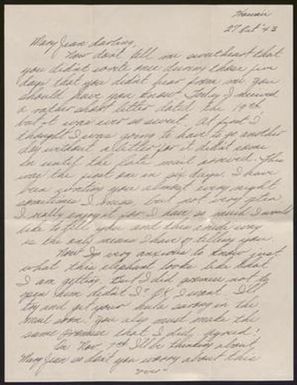 Hawaii
27 Oct '43
Mary Jean darling,
Now don't tell me sweetheart that
you didn't write once during those five
days that you didn't hear from me you
should have you know. Today I received
a rather short letter dated the 19th
but it was ever so sweet. At first I
thought I was going to have to go another
day without a letter for it didn't come
in until the late mail arrived. This
was the first one in six days. I have
been writing you almost every night
sometimes I miss, but not very often
I really enjoy it for I have so much I would
like to tell you and this way
is the only means I have of telling you.
Now I'm very anxious to know just
what this elephant looks like that
I am getting. But I did promise not to
open them didn't I? If I wasn't I'll
try and get your
mail soon. You also must make the
same promise that I did, agreed!
On Nov 7th I'll be thinking about
Mary Jean so don't you worry about this
over